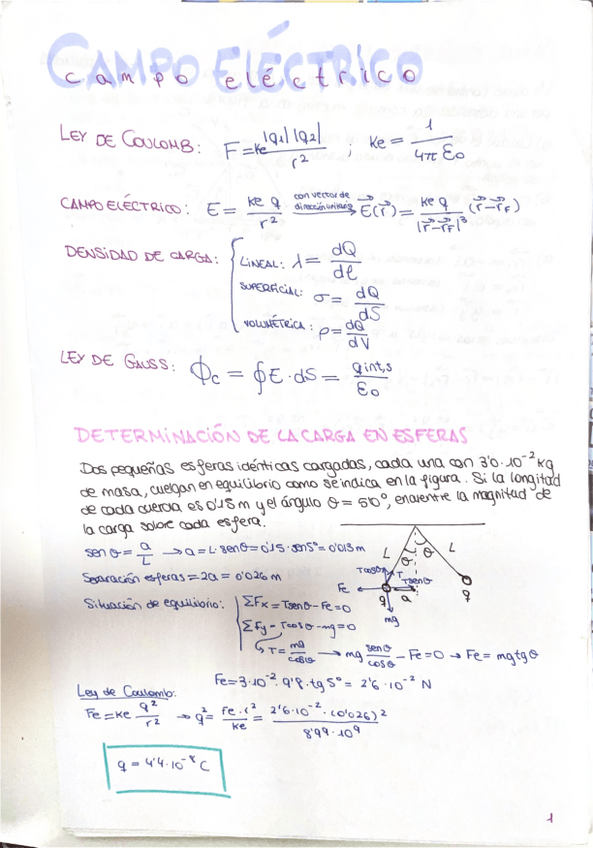 CAMPO ELÉCTRICO
campo eléctrico
LEY DE COULOMB: F = Ke |q1| |q2| / r² ; Ke = 1 / 4π ε0
CAMPO ELÉCTRICO: E = Ke q / r² con vector de dirección unitario → E⃗(r⃗) = Ke q / |r⃗-r⃗F|³ (r⃗-r⃗F)
DENSIDAD DE CARGA: LINEAL: λ = dQ / dℓ
SUPERFICIAL: σ = dQ / dS
VOLUMÉTRICA: ρ = dQ / dV
LEY DE GAUSS: ϕc = ∮ E · dS = q int,s / ε0
DETERMINACIÓN DE LA CARGA EN ESFERAS
Dos pequeñas esferas idénticas cargadas, cada una con 3'0·10⁻² kg
de masa, cuelgan en equilibrio como se indica en la figura. Si la longitud
de cada cuerda es 0'15 m y el ángulo θ = 5'0°, encuentre la magnitud de
la carga sobre cada esfera.
sen θ = a / L → a = L·senθ = 0'15·sen5° = 0'013 m
Separación esferas = 2a = 0'026 m
L θ θ L
Tcosθ T Tsenθ
Fe q a q
mg
Situación de equilibrio: ΣFx = Tsenθ - Fe = 0
ΣFy = Tcosθ - mg = 0
T = mg / cosθ → mg senθ / cosθ - Fe = 0 → Fe = mg tg θ
Fe = 3·10⁻²·9'8·tg 5° = 2'6·10⁻² N
Ley de Coulomb:
Fe = Ke q² / r² → q² = Fe·r² / Ke = 2'6·10⁻²·(0'026)² / 8'99·10⁹
q = 4'4·10⁻⁸ C
1